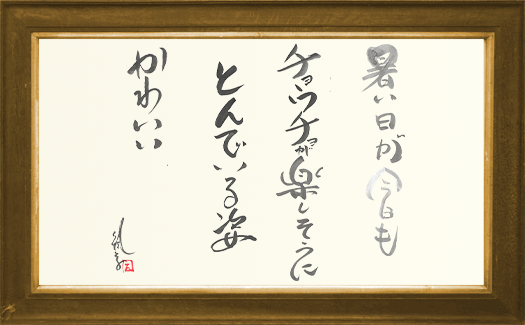 暑い日が今日も
チョウチョが楽しそうに
とんでいる姿
かわいい